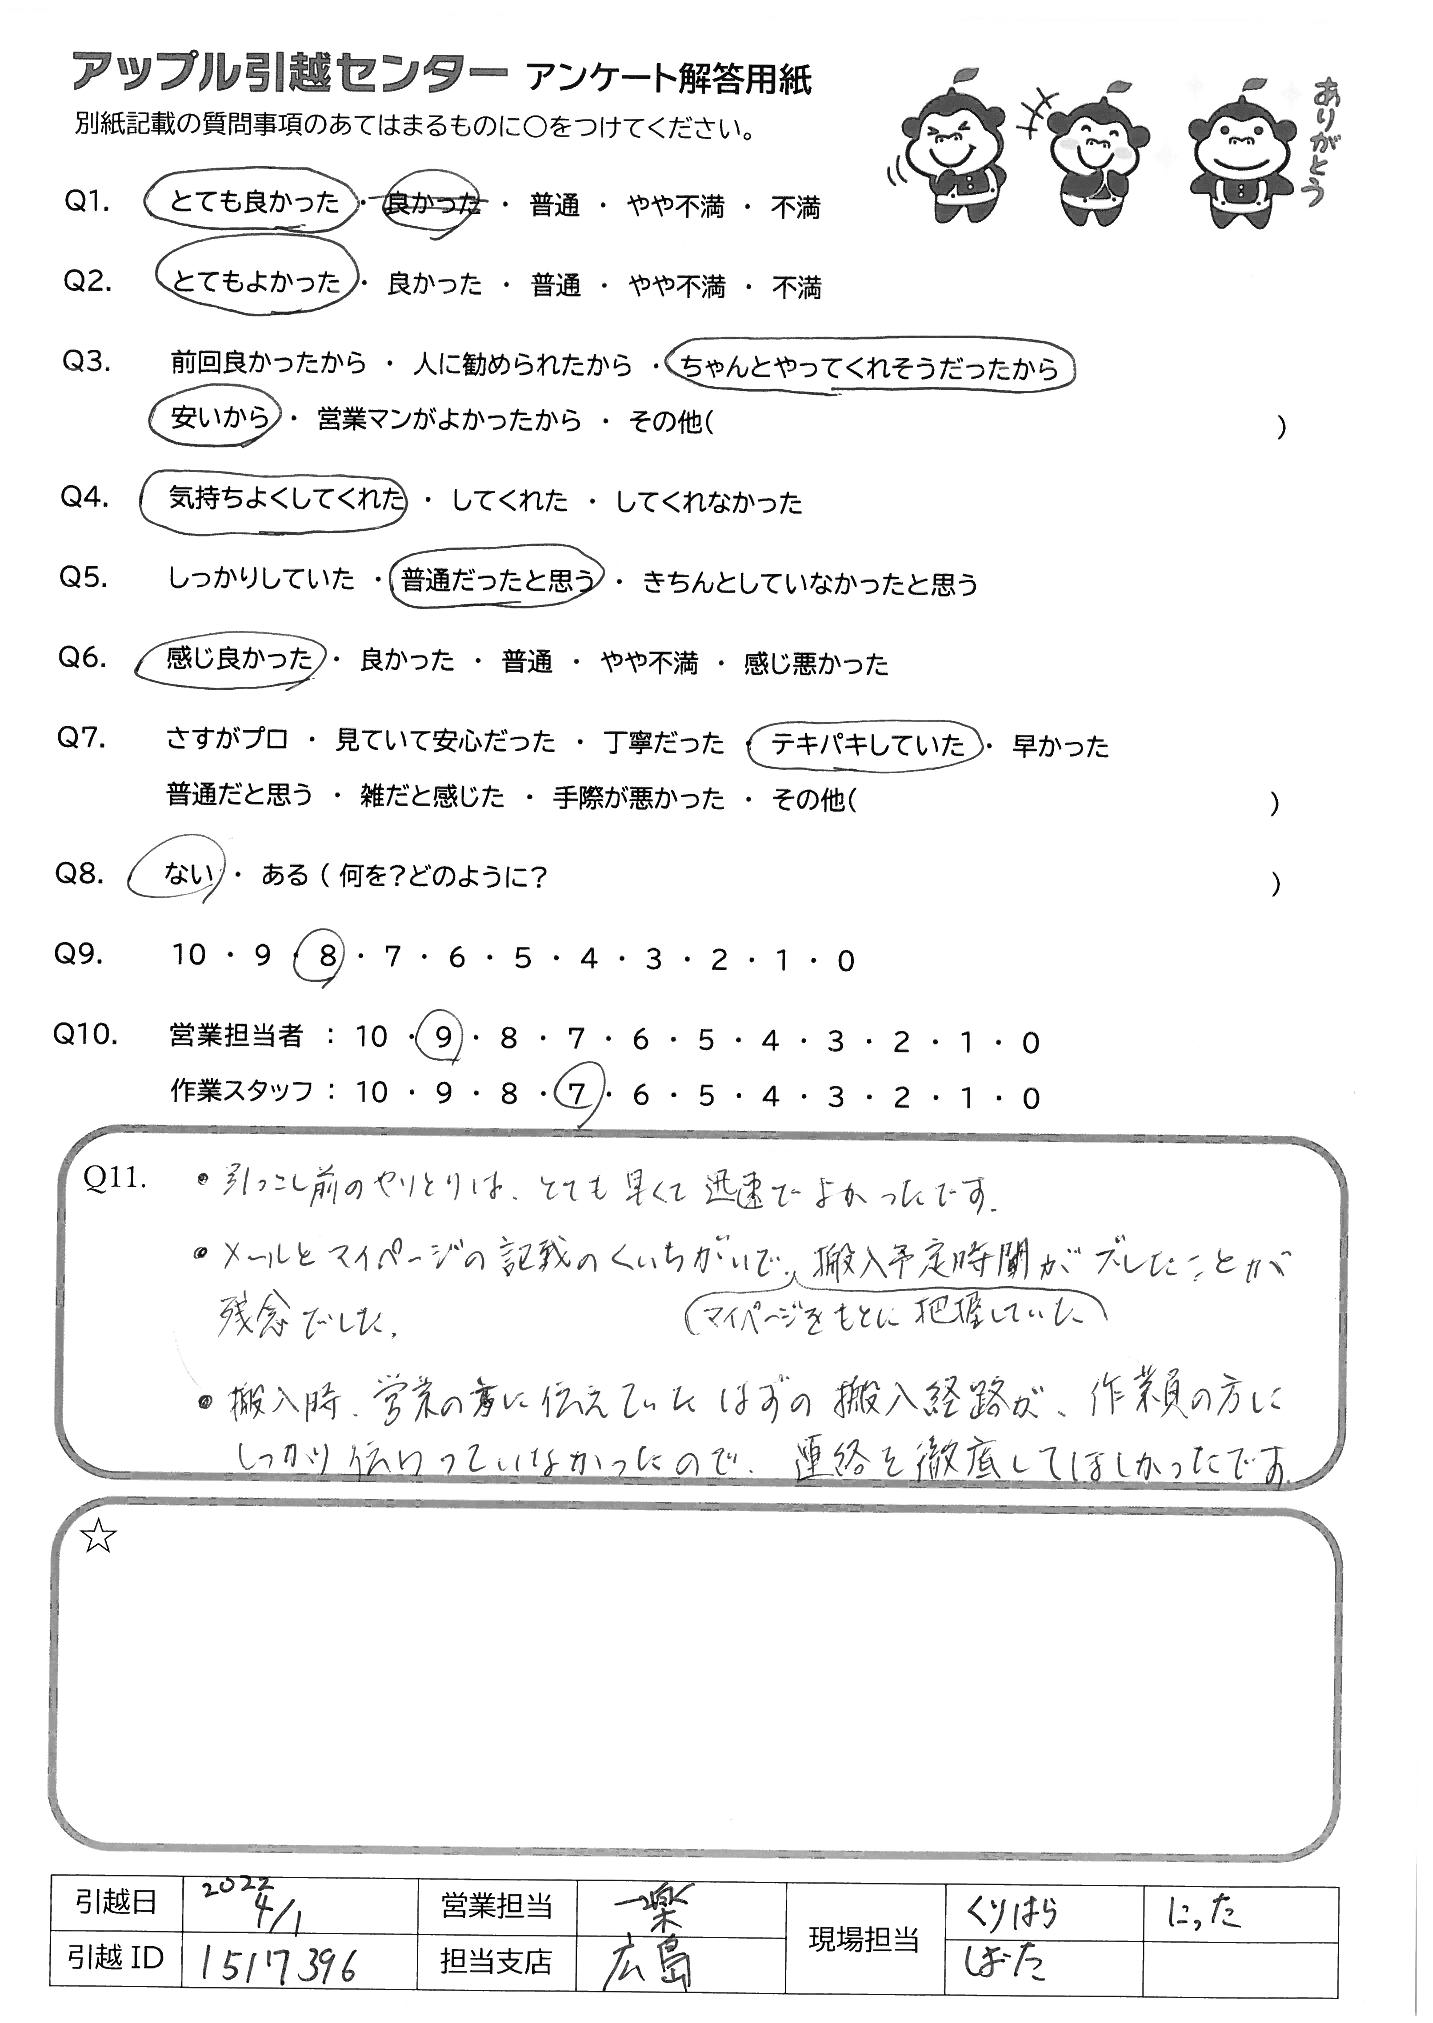 アップル引越センター アンケート解答用紙
別紙記載の質問事項のあてはまるものに○をつけてください。
ありがとう
Q1. とても良かった ・ 良かった ・ 普通 ・ やや不満 ・ 不満
Q2. とてもよかった ・ 良かった ・ 普通 ・ やや不満 ・ 不満
Q3. 前回良かったから ・ 人に勧められたから ・ ちゃんとやってくれそうだったから
安いから ・ 営業マンがよかったから ・ その他( )
Q4. 気持ちよくしてくれた ・ してくれた ・ してくれなかった
Q5. しっかりしていた ・ 普通だったと思う ・ きちんとしていなかったと思う
Q6. 感じ良かった ・ 良かった ・ 普通 ・ やや不満 ・ 感じ悪かった
Q7. さすがプロ ・ 見ていて安心だった ・ 丁寧だった ・ テキパキしていた ・ 早かった
普通だと思う ・ 雑だと感じた ・ 手際が悪かった ・ その他( )
Q8. ない ・ ある ( 何を?どのように? )
Q9. 10 ・ 9 ・ 8 ・ 7 ・ 6 ・ 5 ・ 4 ・ 3 ・ 2 ・ 1 ・ 0
Q10. 営業担当者 : 10 ・ 9 ・ 8 ・ 7 ・ 6 ・ 5 ・ 4 ・ 3 ・ 2 ・ 1 ・ 0
作業スタッフ : 10 ・ 9 ・ 8 ・ 7 ・ 6 ・ 5 ・ 4 ・ 3 ・ 2 ・ 1 ・ 0
Q11. ・引っこし前のやりとりは、とても早くて迅速でよかったです。
・メールとマイページの記載のくいちがいで、搬入予定時間がズレたことが
残念でした。 (マイページをもとに把握していた)
・搬入時、営業の方に伝えていたはずの搬入経路が、作業員の方に
しっかり伝わっていなかったので、連絡を徹底してほしかったです。
☆
引越日 2022 4/1 営業担当 一楽 現場担当 くりはら にった
引越ID 1517396 担当支店 広島 しばた